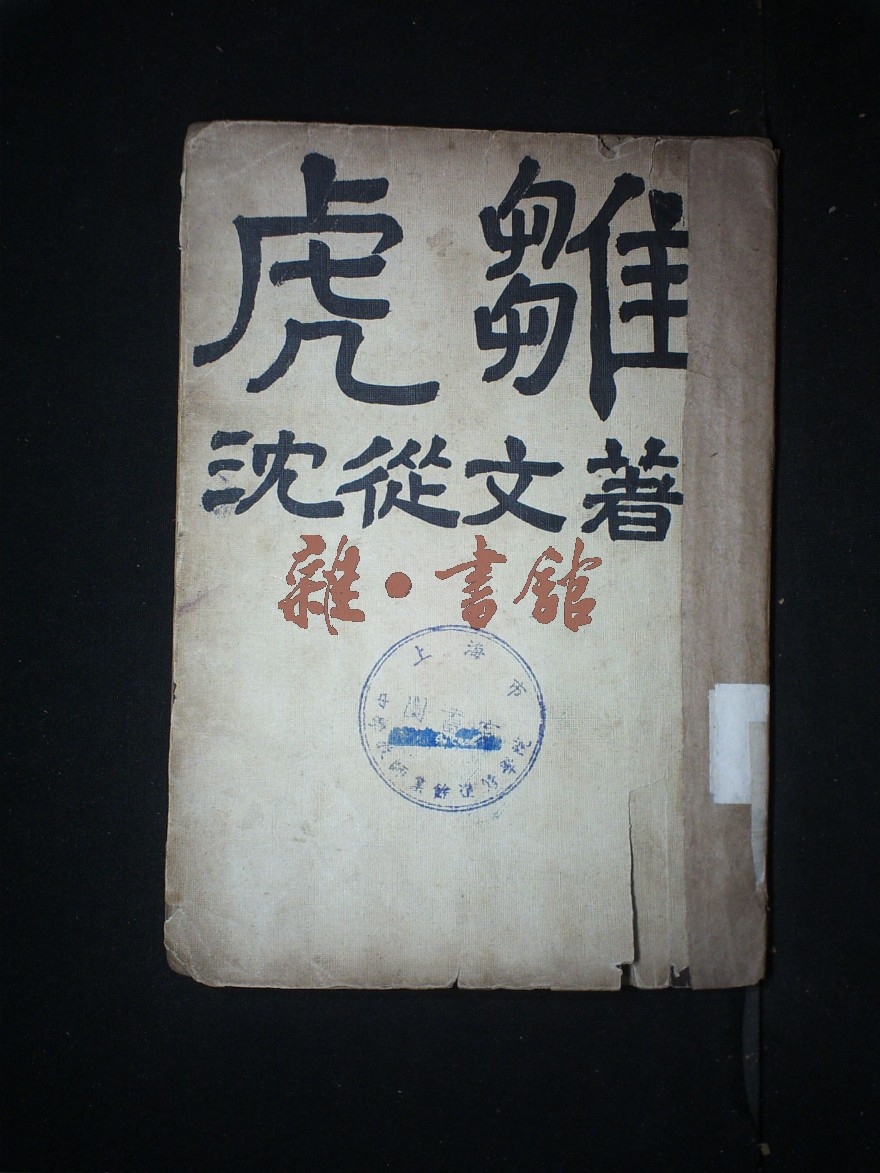 虎雛
沈從文著
雜·書館
上海市